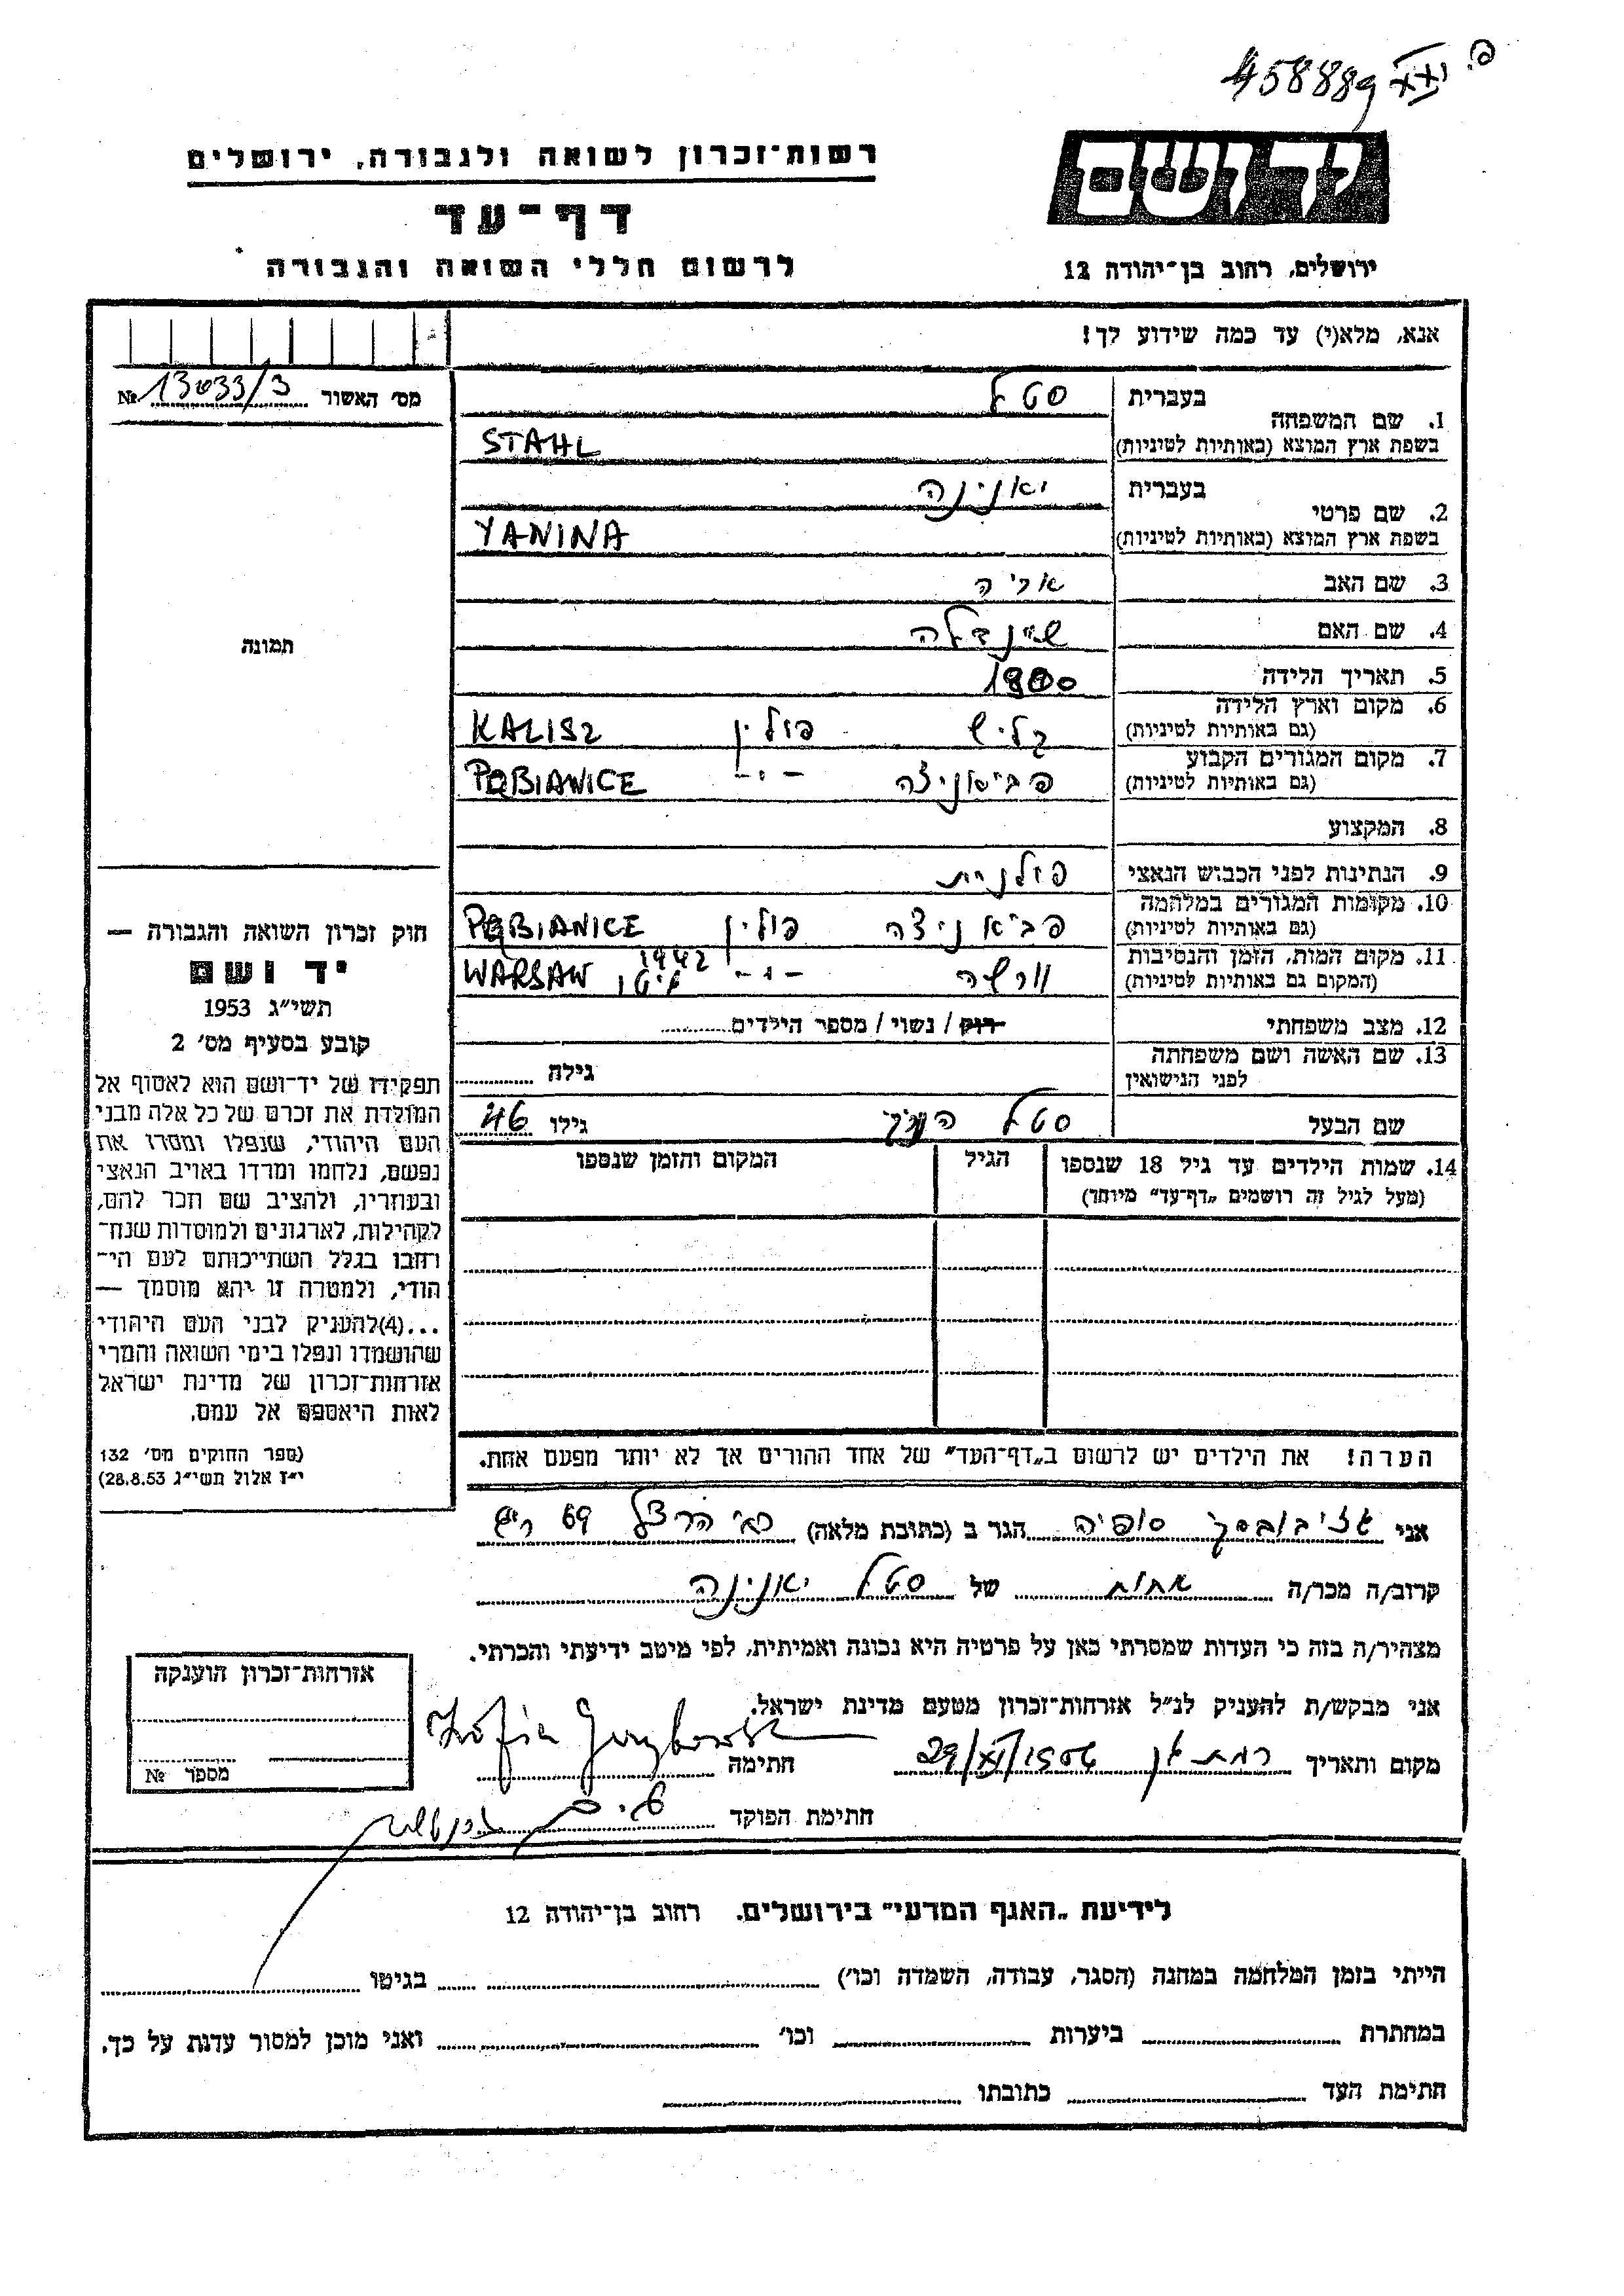 458889
יד ושם
ירושלים, רחוב בן־יהודה 12
רשות־זכרון לשואה ולגבורה, ירושלים
דף־עד
לרשום חללי השואה והגבורה
אנא, מלא(י) עד כמה שידוע לך!
מס׳ האשור № 13033/3
תמונה
בעברית סטל
1. שם המשפחה
בשפת ארץ המוצא (באותיות לטיניות) STAHL
בעברית יאנינה
2. שם פרטי
בשפת ארץ המוצא (באותיות לטיניות) YANINA
3. שם האב אריה
4. שם האם שיינדלה
5. תאריך הלידה
6. מקום וארץ הלידה
(גם באותיות לטיניות) קליש פולין KALISZ
7. מקום המגורים הקבוע
(גם באותיות לטיניות) פביאניצה -"- PABIANICE
8. המקצוע
9. הנתינות לפני הכבוש הנאצי פולנית
10. מקומות המגורים במלחמה
(גם באותיות לטיניות) פביאניצה פולין PABIANICE
11. מקום המות, הזמן והנסיבות
(המקום גם באותיות לטיניות) וורשה -"- 1942 גיטו WARSAW
12. מצב משפחתי רוק / נשוי / מספר הילדים
13. שם האשה ושם משפחתה
לפני הנישואין גילה
שם הבעל סטל גילו 46
14. שמות הילדים עד גיל 18 שנספו הגיל המקום והזמן שנספו
(מעל לגיל זה רושמים „דף־עד” מיוחד)
הערה! את הילדים יש לרשום ב„דף־העד” של אחד ההורים אך לא יותר מפעם אחת.
חוק זכרון השואה והגבורה —
יד ושם
תשי״ג 1953
קובע בסעיף מס׳ 2
תפקידו של יד־ושם הוא לאסוף אל
המולדת את זכרם של כל אלה מבני
העם היהודי, שנפלו ומסרו את
נפשם, נלחמו ומרדו באויב הנאצי
ובעוזריו, ולהציב שם וזכר להם,
לקהילות, לארגונים ולמוסדות שנח־
רבו בגלל השתייכותם לעם הי־
הודי, ולמטרה זו יהא מוסמך —
...(4)להעניק לבני העם היהודי
שהושמדו ונפלו בימי השואה והמרי
אזרחות־זכרון של מדינת ישראל
לאות היאספם אל עמם.
(ספר החוקים מס׳ 132
י״ז אלול תשי״ג 28.8.53)
אני סופיה הגר ב (כתובת מלאה) הרצל 69
קרוב/ה מכר/ה אחות של סטל יאנינה
מצהיר/ה בזה כי העדות שמסרתי כאן על פרטיה היא נכונה ואמיתית, לפי מיטב ידיעתי והכרתי.
אני מבקש/ת להעניק לנ״ל אזרחות־זכרון מטעם מדינת ישראל.
מקום ותאריך רמת גן 29/XI/1956 חתימה Zofia
חתימת הפוקד
אזרחות־זכרון הוענקה
מספר №
לידיעת „האגף המדעי” בירושלים. רחוב בן־יהודה 12
הייתי בזמן המלחמה במחנה (הסגר, עבודה, השמדה וכו׳) בגיטו
במחתרת ביערות וכו׳ ואני מוכן למסור עדות על כך.
חתימת העד כתובתו